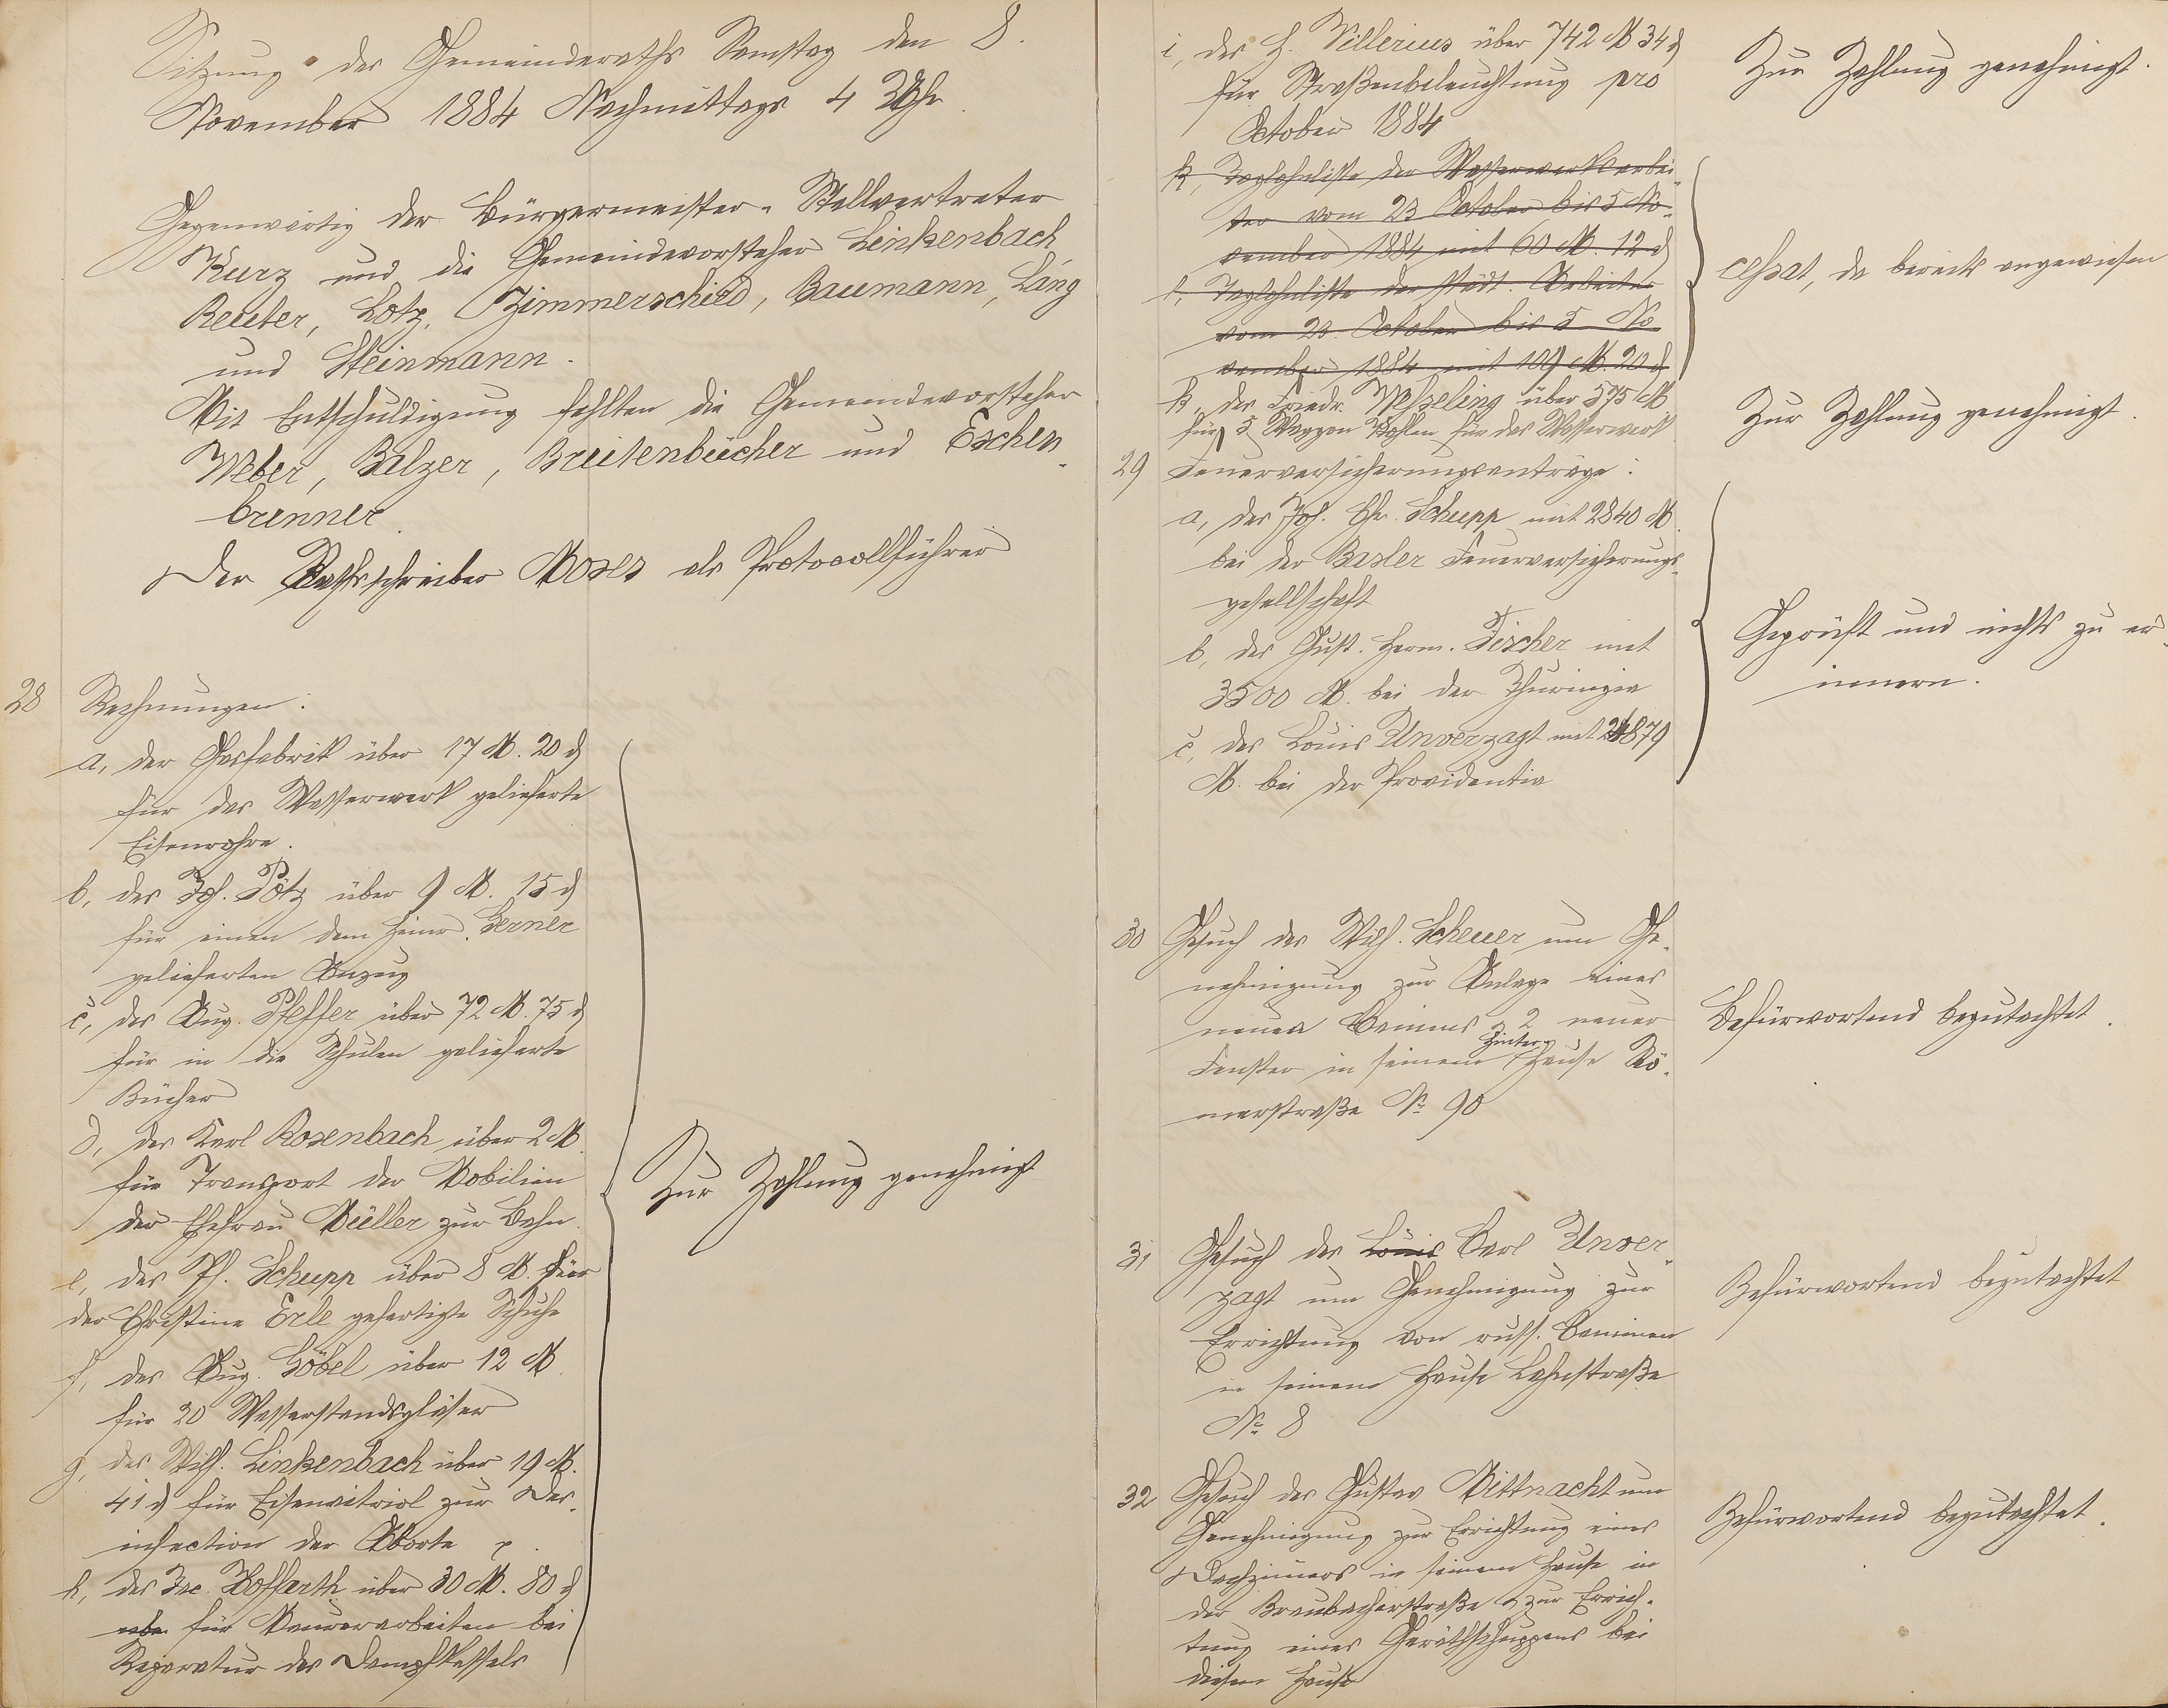 Sitzung des Gemeinderaths Samstag den 8.
November 1884 Nachmittags 4 Uhr.
Gegenwärtig der Bürgermeister-Stellvertreter
Kurz und die Gemeindevorsteher Linkenbach
Reuter, Lotz, Zimmerschied, Baumann, Läng
und Steinmann.
Mit Entschuldigung fehlten die Gemeindevorsteher
Weber, Balzer, Breitenbücher und Eschen-
brenner.
Der Rathsschreiber Moses als Protocollführer
28 Rechnungen:
a, der Gasfabrik über 17 M. 20 ₰
für das Wasserwerk gelieferte
Eisenrohre.
b, des Jos. Pötz über 9 M. 15 ₰
für einen dem Heinr. Gerner
gelieferten Anzug
c, des Aug. Pfeffer über 72 M. 75 ₰
für in die Schulen gelieferte
Bücher
d, des Karl Rosenbach über 2 M.
für Transport der Mobilien
der Ehefrau Müller zur Bahn.
e, des Ph. Schupp über 8 M. für
der Christine Erle gefertigte Schuhe
f, des Aug. Göbel über 12 M.
für 20 Wasserstandsgläser
g, des Wilh. Linkenbach über 19 M.
41 ₰ für Eisenvitriol zur Des-
infection der Aborte p.
h, des Hoffarth über 30 M. 80 ₰
für Maurerarbeiten bei
Reparatur des Dampfkessels
Zur Zahlung genehmigt
i, des H. Villerius über 742 M 34 ₰
für Straßenbeleuchtung pro
October 1884
Zur Zahlung genehmigt.
k, Taglohnliste der Wasserwerksarbei-
ter vom 23 October bis 5 No-
vember 1884 mit 60 M. 12 ₰
l, Taglohnliste der städt. Arbeiter
vom 23. October bis 5 No-
vember 1884 mit 109 M. 20 ₰
cessat, da bereits angewiesen
k, des Friedr. Wesseling über 575 M
für 5 Waggon Kohlen für das Wasserwerk
Zur Zahlung genehmigt.
29 Feuerversicherungsanträge:
a, des Joh. Chr. Schupp mit 2840 M.
bei der Basler Feuerversicherungs-
gesellschaft
b, des Gust. Herm. Fischer mit
3500 M. bei der Thuringia
c, des Louis Unverzagt mit 24879
M. bei der Providentia
Geprüft und nichts zu er-
innern.
30 Gesuch des Wilh. Scheuer um Ge-
nehmigung zur Anlage eines
neuen Kamins & 2 neuer
Fenster in seinem Hinterhause Rö-
merstraße No 90
Befürwortend begutachtet.
31 Gesuch des Louis Carl Unver-
zagt um Genehmigung zur
Errichtung von russ. Kaminen
in seinem Hause Lahnstraße
No 8
Befürwortend begutachtet
32 Gesuch des Gustav Mittnacht um
Genehmigung zur Errichtung eines
Dachzimmers in seinem Hause in
der Braubacherstraße & zur Errich-
tung eines Geräthschuppens bei
diesem Hause
Befürwortend begutachtet.